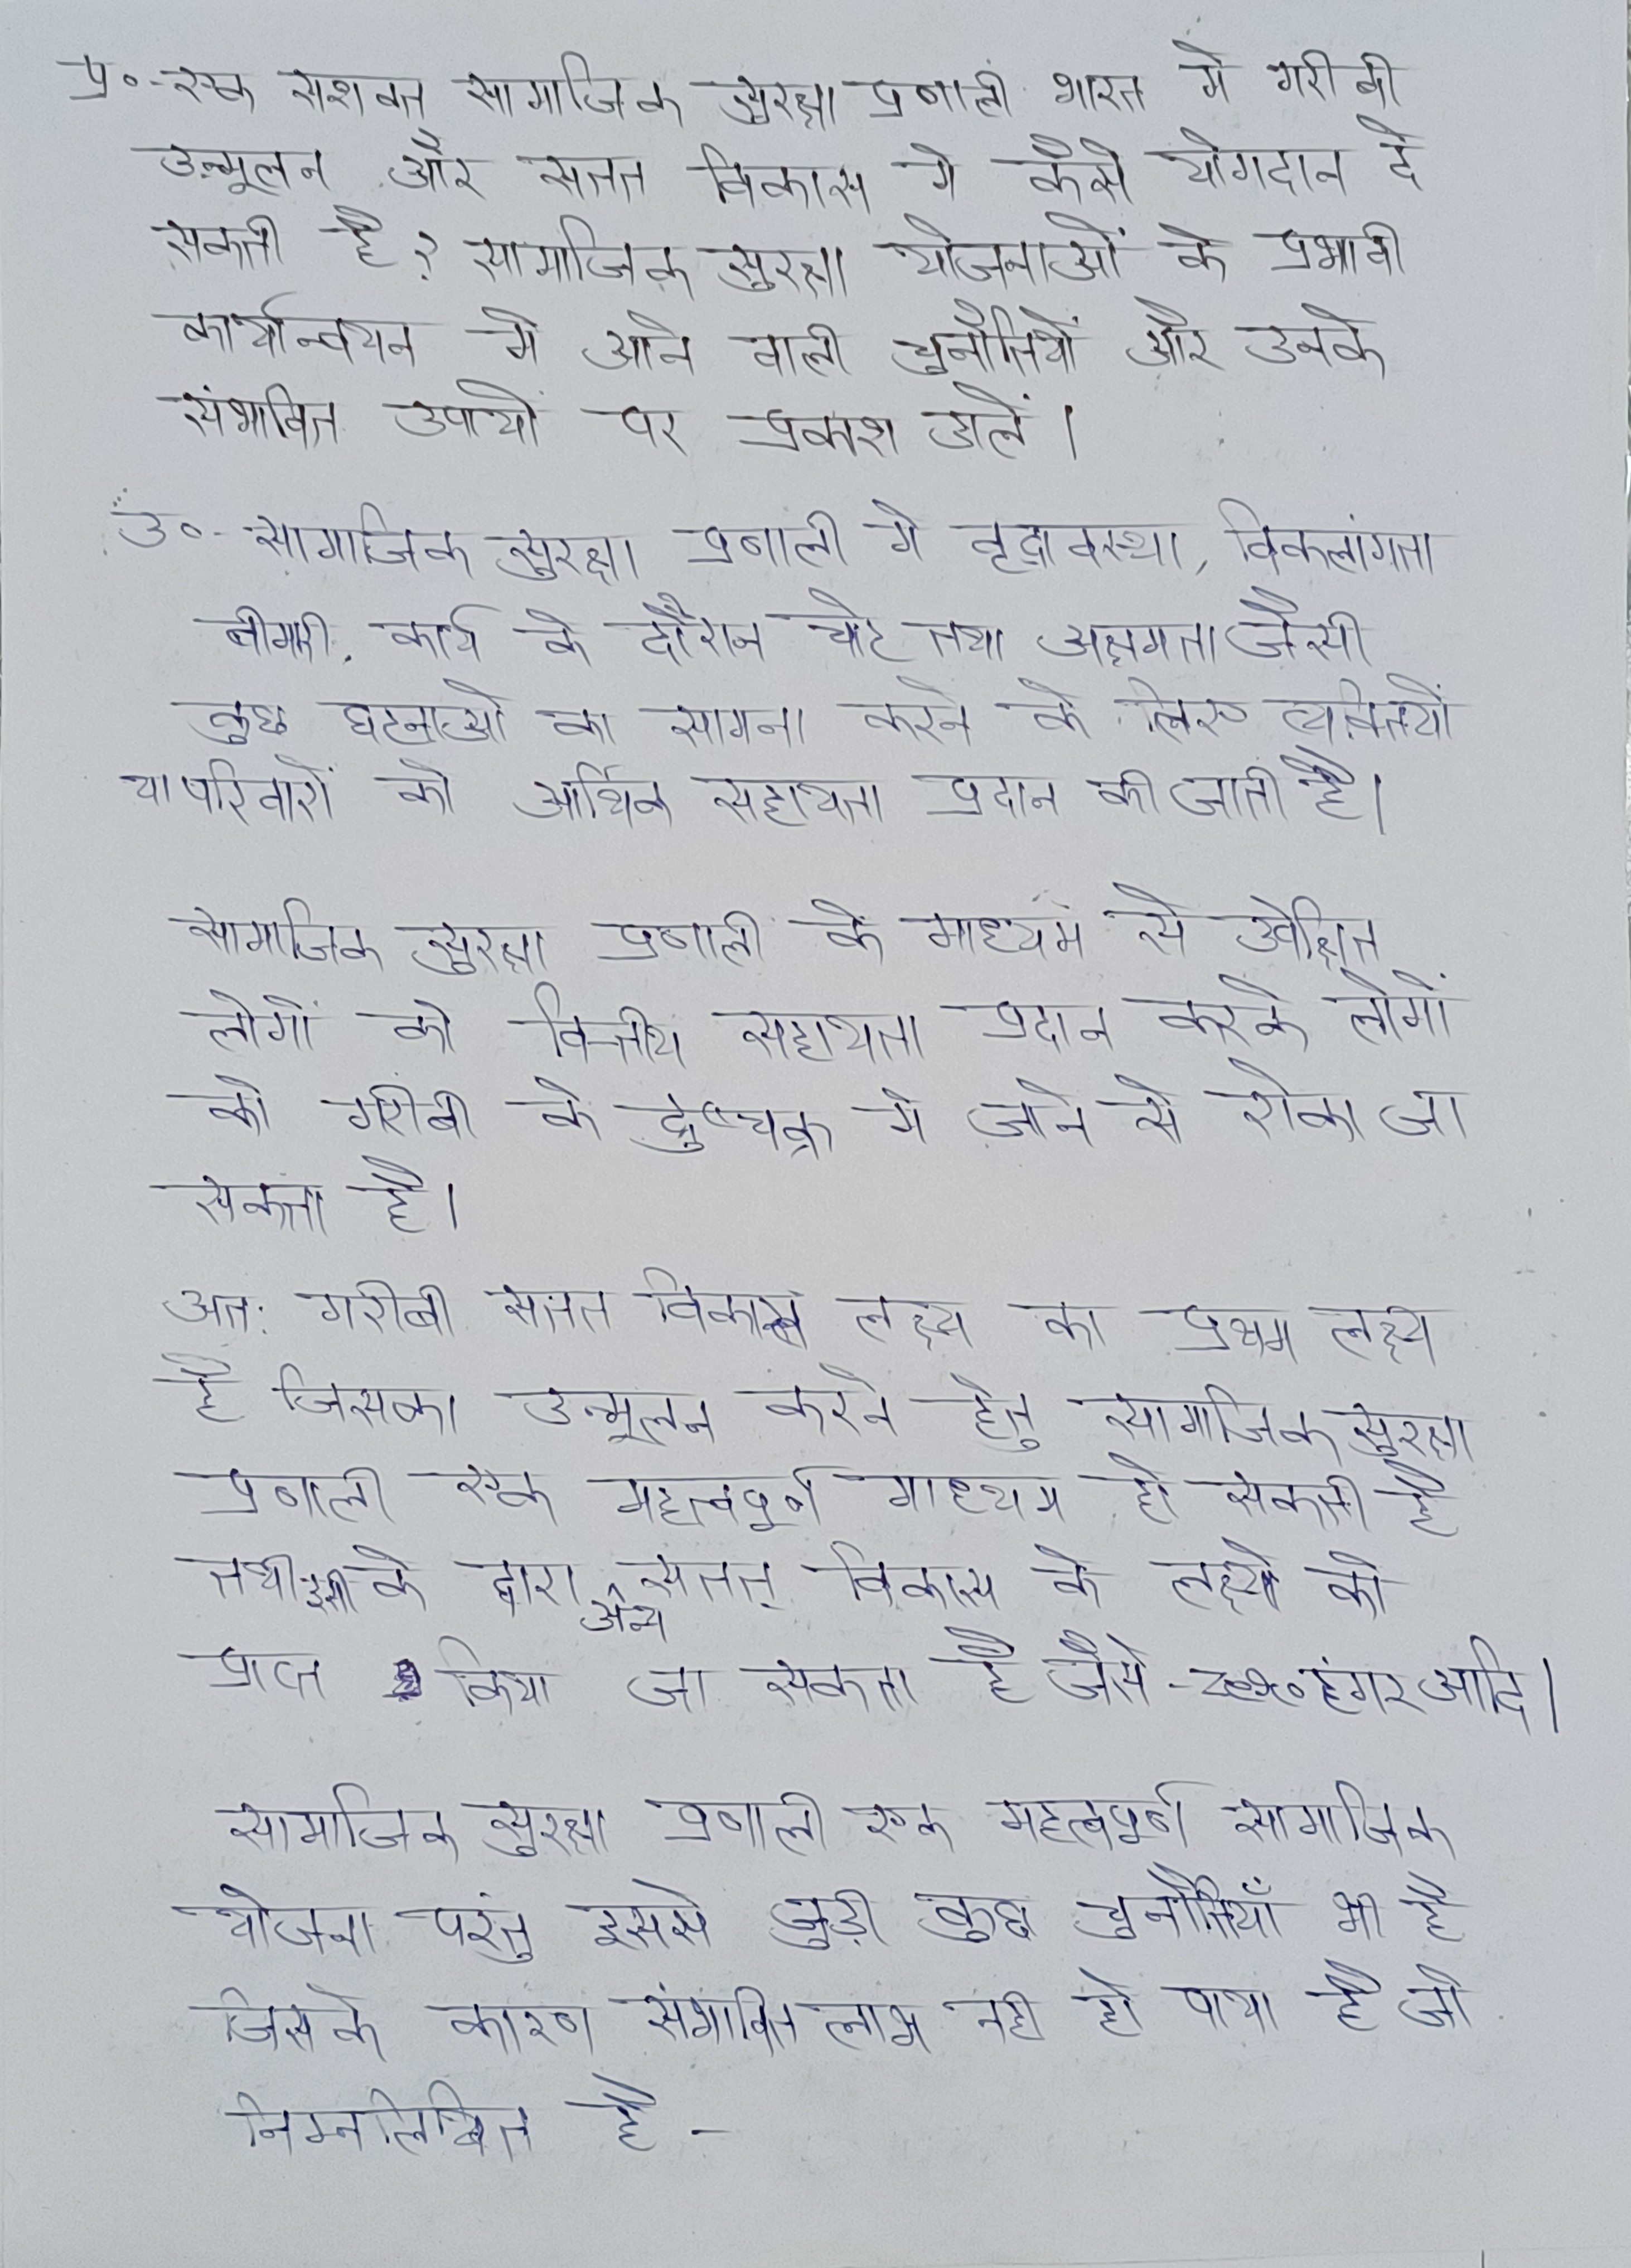 प्र०- एक सशक्त सामाजिक सुरक्षा प्रणाली भारत मे गरीबी
उन्मूलन और सतत विकास मे कैसे योगदान दे
सकती है? सामाजिक सुरक्षा योजनाओं के प्रभावी
कार्यान्वयन मे आने वाली चुनौतियों और उनके
संभावित उपायों पर प्रकाश डालें।
उ०- सामाजिक सुरक्षा प्रणाली मे वृद्धावस्था, विकलांगता
बीमारी, कार्य के दौरान चोट तथा अक्षमता जैसी
कुछ घटनाओ का सामना करने के लिए व्यक्तियों
या परिवारों को आर्थिक सहायता प्रदान की जाती है।
सामाजिक सुरक्षा प्रणाली के माध्यम से उपेक्षित
लोगों को वित्तीय सहायता प्रदान करके लोगों
को गरीबी के दुष्चक्र मे जाने से रोका जा
सकता है।
अत: गरीबी सतत विकास लक्ष्य का प्रथम लक्ष्य
है जिसका उन्मूलन करने हेतु सामाजिक सुरक्षा
प्रणाली एक महत्वपूर्ण माध्यम हो सकती है
तथा इसी के द्वारा अन्य सतत् विकास के लक्ष्यो को
प्राप्त किया जा सकता है जैसे - Zero हंगर आदि।
सामाजिक सुरक्षा प्रणाली एक महत्वपूर्ण सामाजिक
योजना परंतु इससे जुड़ी कुछ चुनौतियाँ भी है
जिसके कारण संभावित लाभ नही हो पाया है जो
निम्नलिखित है -